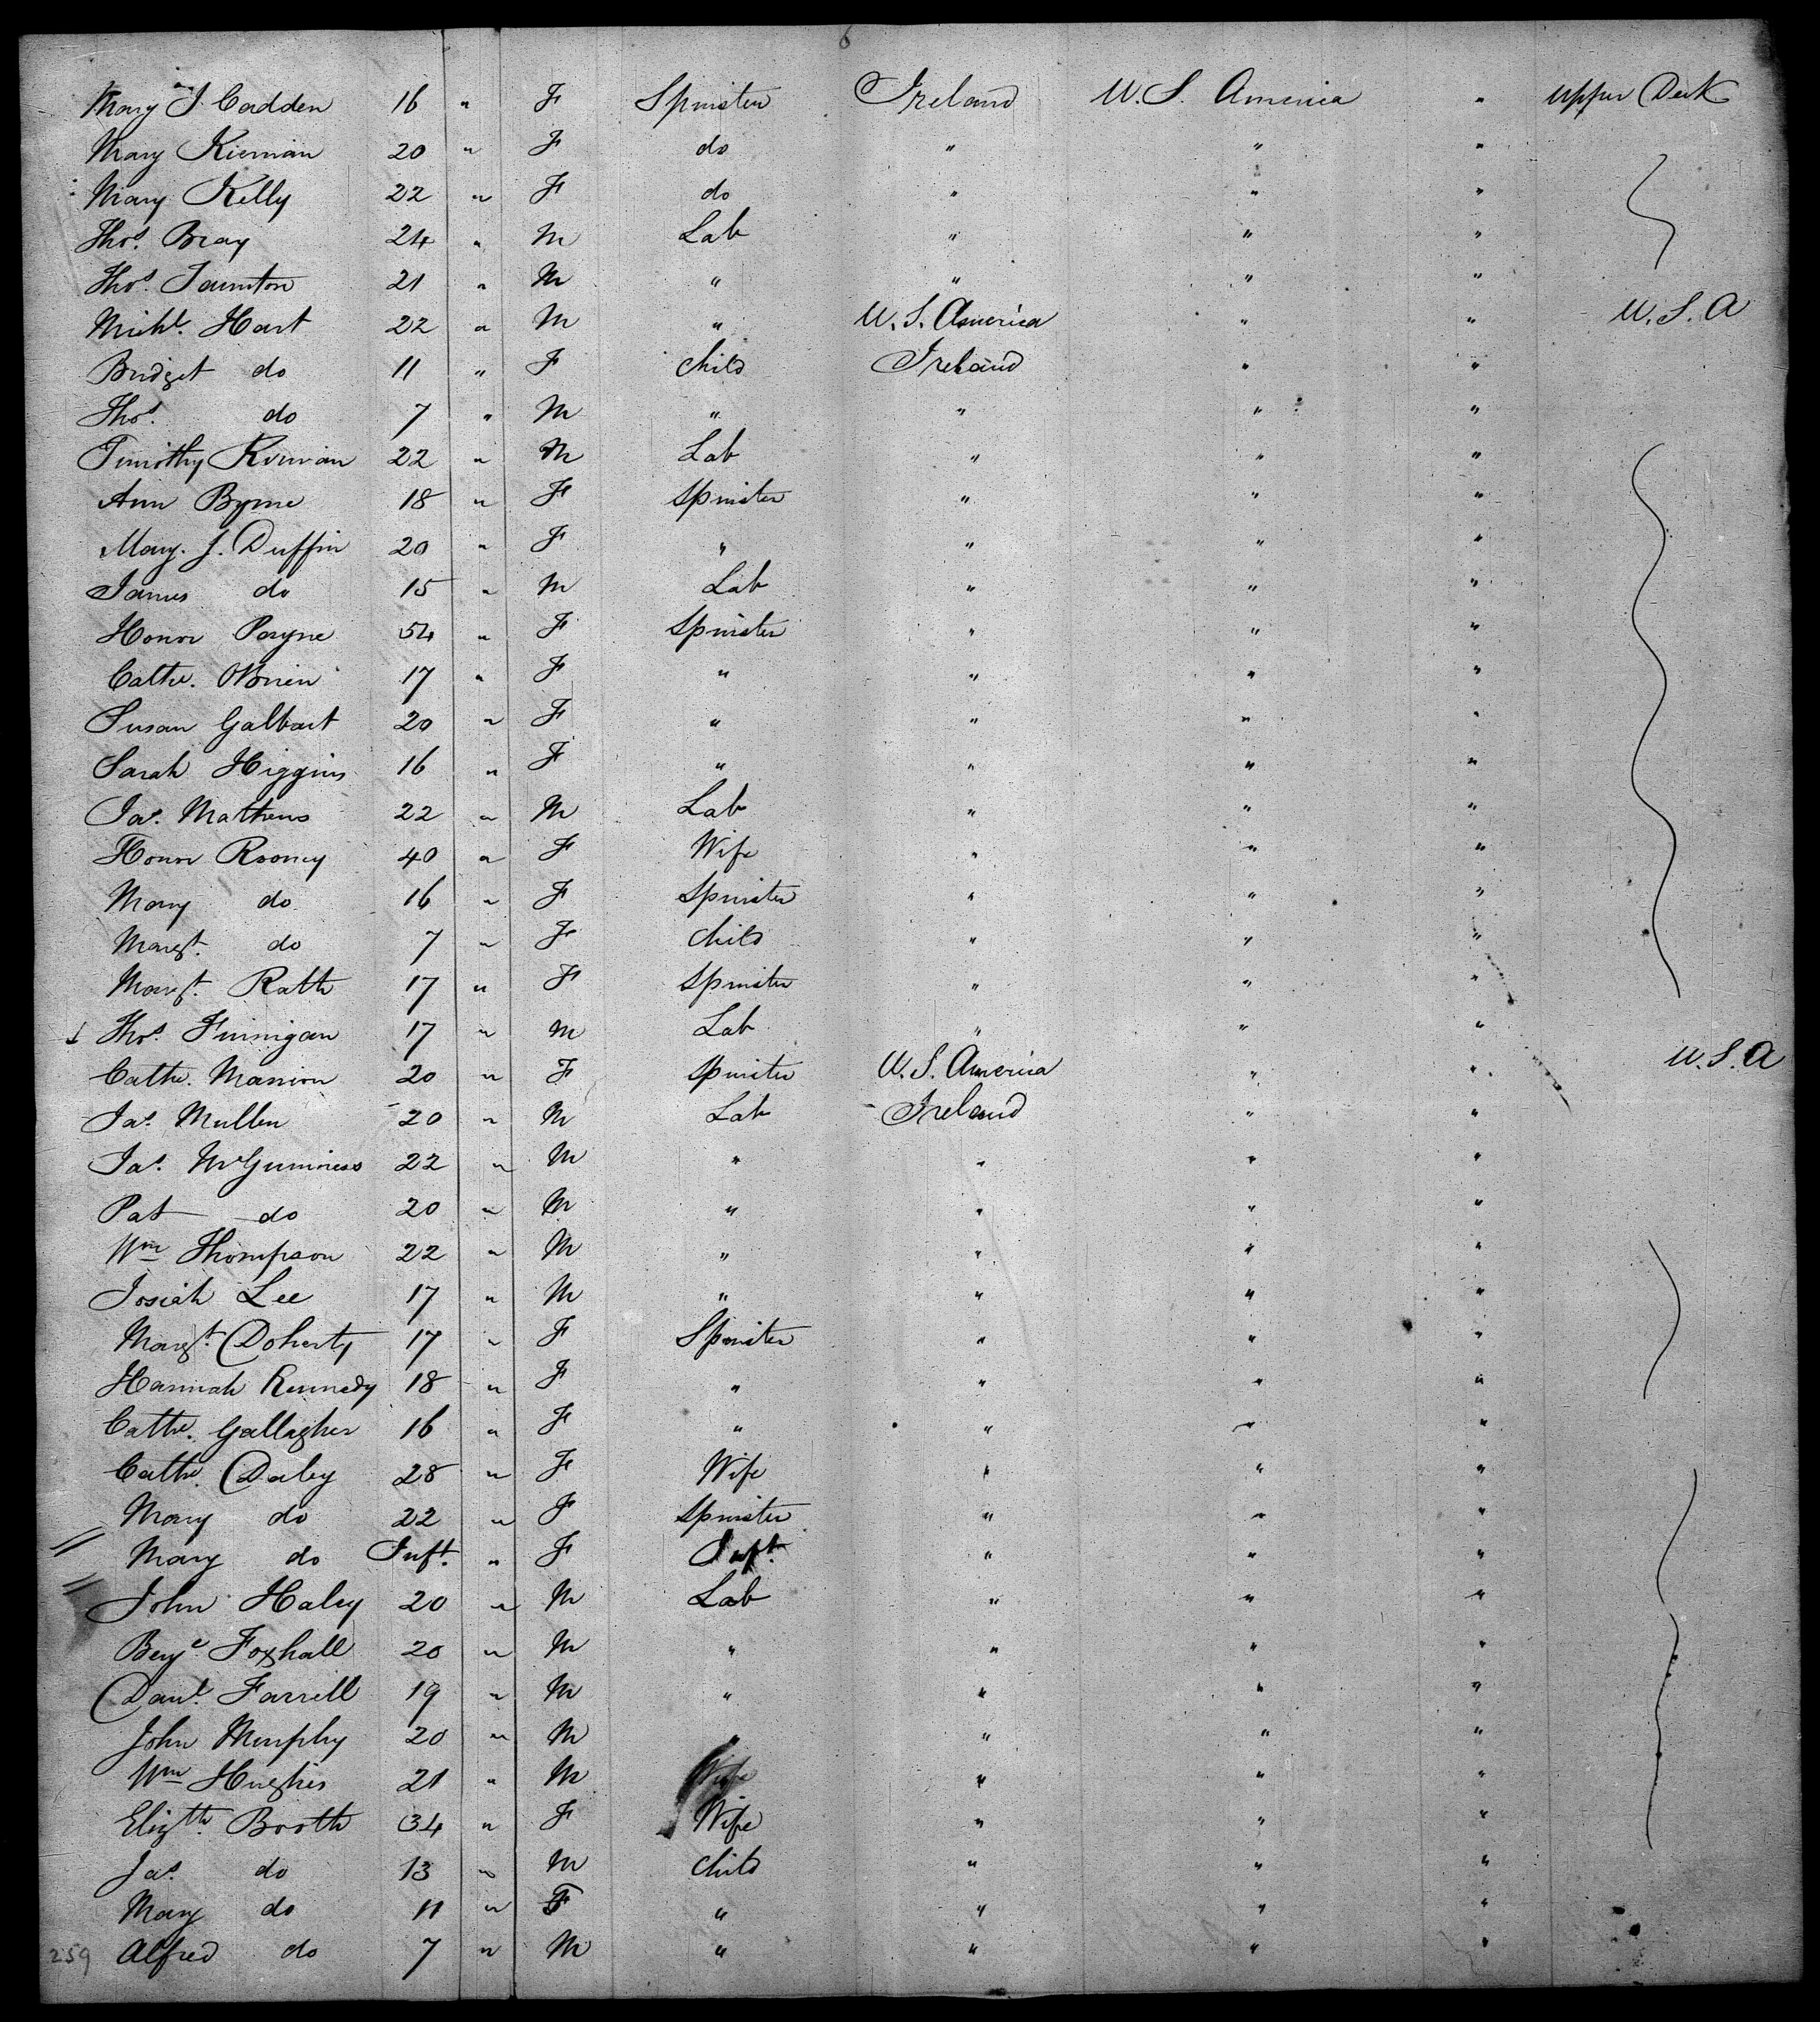 6
Mary J. Cadden 16 " F Spinster Ireland U. S. America " Upper Deck
Mary Kiernan 20 " F do " " "
Mary Kelly 22 " F do " " "
Thos. Bray 24 " M Lab " " "
Thos. Taunton 21 " M " " " "
Michl. Hart 22 " M " U. S. America " " U. S. A
Bridget do 11 " F Child Ireland " "
Thos. do 7 " M " " " "
Timothy Kirwan 22 " M Lab " " "
Ann Byrne 18 " F Spinster " " "
Mary. J. Duffin 20 " F " " " "
James do 15 " M Lab " " "
Honor Payne 54 " F Spinster " " "
Cathe. O'Brien 17 " F " " " "
Susan Galbart 20 " F " " " "
Sarah Higgins 16 " F " " " "
Jas. Mathews 22 " M Lab " " "
Honor Rooney 40 " F Wife " " "
Mary do 16 " F Spinster " " "
Margt. do 7 " F Child " " "
Margt. Rath 17 " F Spinster " " "
Thos. Finnigan 17 " M Lab " " "
Cathe. Mannion 20 " F Spinster U. S. America " " U. S. A
Jas. Mullen 20 " M Lab Ireland " "
Jas. McGuinness 22 " M " " " "
Pat do 20 " M " " " "
Wm Thompson 22 " M " " " "
Josiah Lee 17 " M " " " "
Margt. Doherty 17 " F Spinster " " "
Hannah Kennedy 18 " F " " " "
Cathe. Gallagher 16 " F " " " "
Cathe. Daley 28 " F Wife " " "
Mary do 22 " F Spinster " " "
Mary do Inft. " F Inft. " " "
John Haley 20 " M Lab " " "
Benj. Foxhall 20 " M " " " "
Danl. Farrell 19 " M " " " "
John Murphy 20 " M " " " "
Wm Hughes 21 " M Wife " " "
Elizth. Booth 34 " F Wife " " "
Jas. do 13 " M Child " " "
Mary do 11 " F " " " "
259 Alfred do 7 " M " " " "